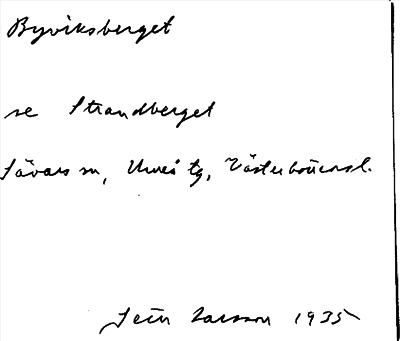 Byviksberget
se Strandberget
Sävars sn, Umeå tg, Västerbottensl.
Larsson 1935